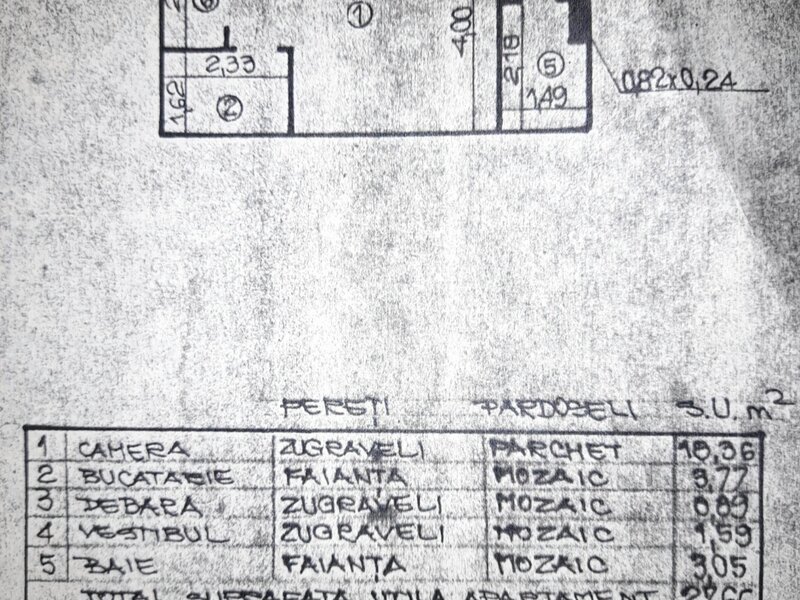 1
4,00
2,18
5
0,82x0,24
2,33
1,49
1,62
2
PEREȚI PARDOSELI S.U. m²
1 CAMERA ZUGRAVELI PARCHET 18,36
2 BUCATARIE FAIANȚA MOZAIC 3,77
3 DEBARA ZUGRAVELI MOZAIC 0,89
4 VESTIBUL ZUGRAVELI MOZAIC 1,59
5 BAIE FAIANȚA MOZAIC 3,05
TOTAL SUPRAFATA UTILA APARTAMENT 27,66